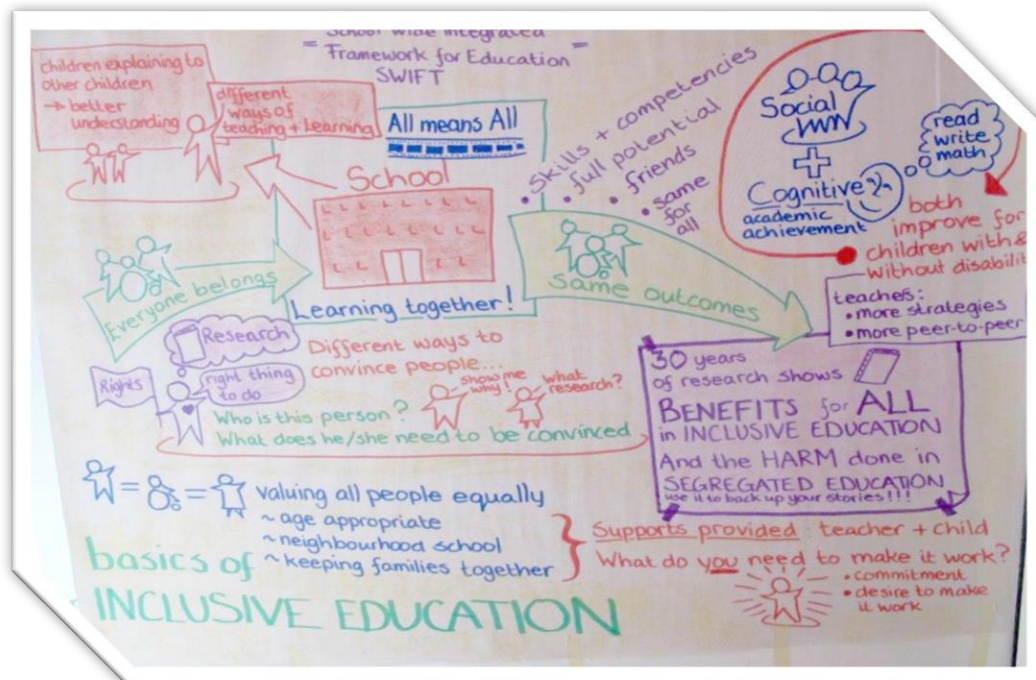 School wide integrated
= Framework for Education =
SWIFT
children explaining to
other children
→ better
understanding
different
ways of
teaching + learning
All means All
School
Learning together!
Everyone belongs
• Skills + competencies
• full potential
• friends
• same
for
all
Same outcomes
Social
+
Cognitive
academic
achievement
read
write
math
both
improve for
children with &
without disabilit
teachers:
• more strategies
• more peer-to-peer
Research
Rights
right thing
to do
Different ways to
convince people...
show me
why!
what
research?
Who is this person?
What does he/she need to be convinced
30 years
of research shows
BENEFITS for ALL
in INCLUSIVE EDUCATION
And the HARM done in
SEGREGATED EDUCATION
use it to back up your stories!!!
= = valuing all people equally
~ age appropriate
~ neighbourhood school
~ keeping families together
Supports provided: teacher + child
What do you need to make it work?
• commitment
• desire to make
it work
basics of
INCLUSIVE EDUCATION